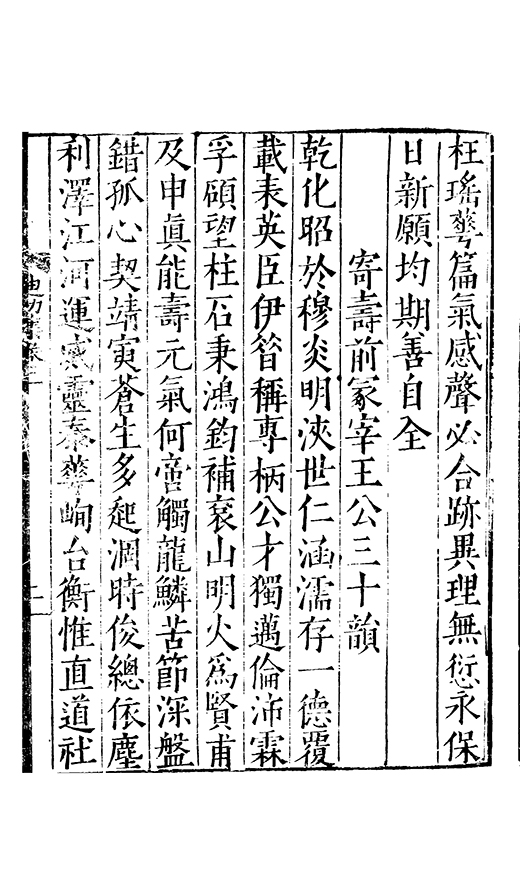 枉瑤華篇氣感聲必合跡異理無愆永保
日新願均期善自全
寄壽前冢宰王公三十韻
乾化昭於穆炎明浹世仁涵濡存一德覆
載表英臣伊昔稱專柄公才獨邁倫沛霖
孚願望柱石秉鴻鈞補袞山明火爲賢甫
及申真能壽元氣何啻觸龍鱗苦節深盤
錯孤心契靖寅蒼生多起涸時俊總依塵
利澤江河運感靈泰華峋台衡惟直道社